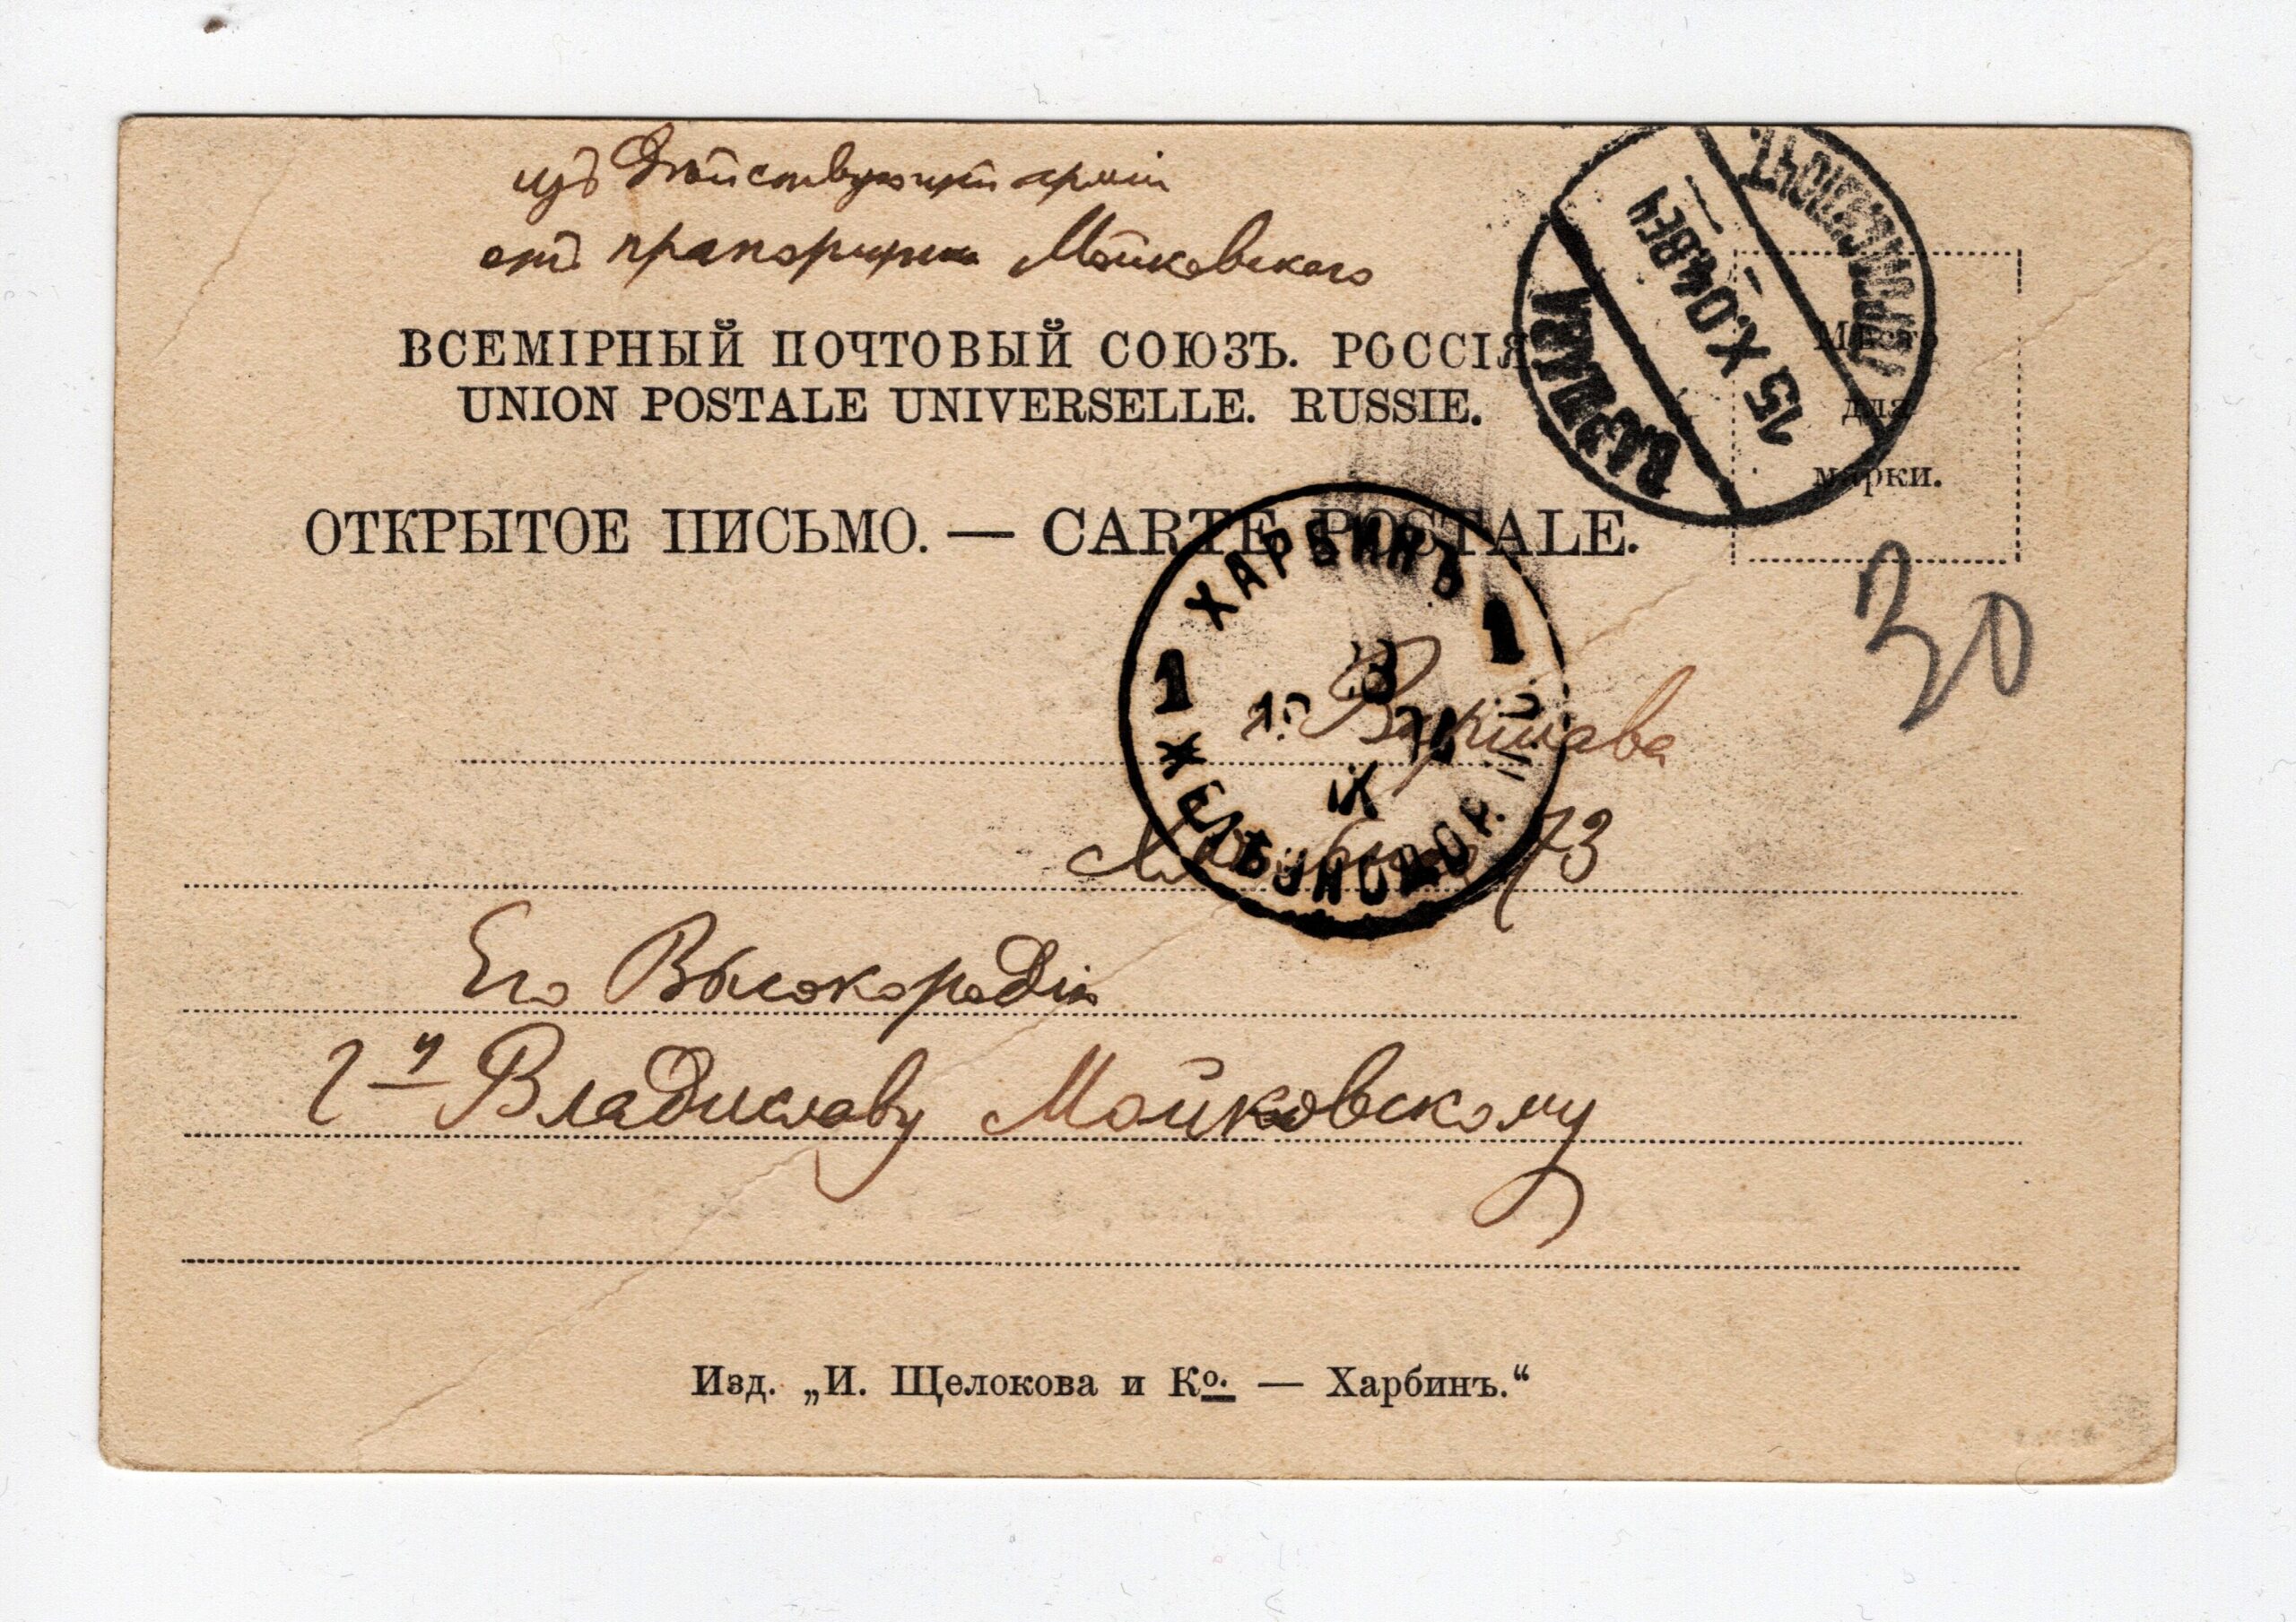 изъ Дѣйствующей арміи
отъ прапорщика Мойковского
ВСЕМІРНЫЙ ПОЧТОВЫЙ СОЮЗЪ. РОССІЯ
UNION POSTALE UNIVERSELLE. RUSSIE.
ВАРШАВА
15 X.04 ВЕЧ
Мѣсто
для
марки.
ОТКРЫТОЕ ПИСЬМО. — CARTE POSTALE.
30
ХАРБИНЪ
1 1
IX
ЖЕЛѢЗНОДОР.
г. Варшава
73
Его Высокородію
Г-ну Владиславу Мойковскому
Изд. „И. Щелокова и Ко. — Харбинъ.“